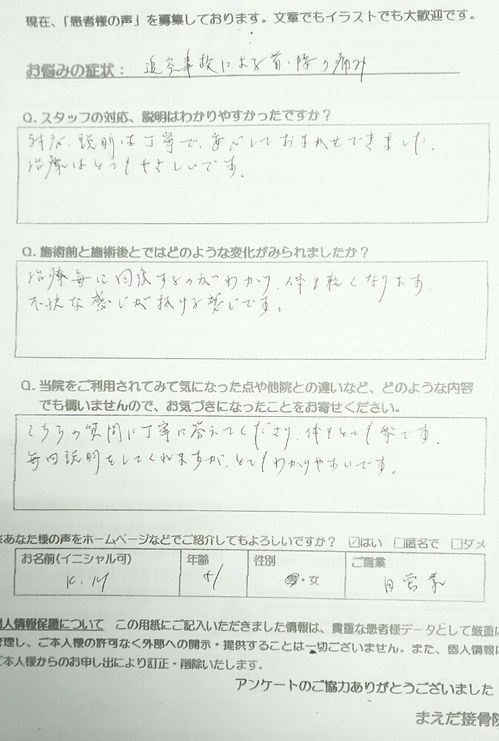 現在、「患者様の声」を募集しております。文章でもイラストでも大歓迎です。
お悩みの症状： 追突事故による首・腰の痛み
Q. スタッフの対応、説明はわかりやすかったですか？
対応、説明は丁寧で、安心しておまかせできました。
治療はとてもやさしいです。
Q. 施術前と施術後とではどのような変化がみられましたか？
治療毎に回復するのがわかり、体も軽くなります。
不快な感じが抜ける感じです。
Q. 当院をご利用されてみて気になった点や他院との違いなど、どのような内容
でも構いませんので、お気づきになったことをお寄せください。
こちらの質問に丁寧に答えてくださり、体もとても楽です。
毎回説明をしてくれますが、とてもわかりやすいです。
※あなた様の声をホームページなどでご紹介してもよろしいですか？ ☑はい □匿名で □ダメ
お名前(イニシャル可) 年齢 性別 ご職業
K.M 51 ・女 自営業
個人情報保護について この用紙にご記入いただきました情報は、貴重な患者様データとして厳重に
管理し、ご本人様の許可なく外部への開示・提供することは一切ございません。また、個人情報は
ご本人様からのお申し出により訂正・削除いたします。
アンケートのご協力ありがとうございました
まえだ接骨院